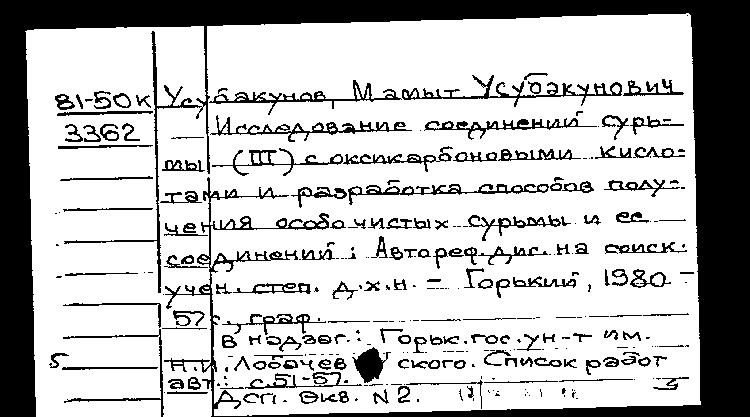 81-50к Усубакунов, Мамыт Усубакунович
3362 Исследование соединений сурь-
мы (III) с оксикарбоновыми кисло-
тами и разработка способов полу-
чения особо чистых сурьмы и ее
соединений : Автореф. дис. на соиск.
учен. степ. д.х.н. - Горький, 1980 -
57с., граф.
В надзаг.: Горьк. гос. ун-т им.
Н.И. Лобачевского. Список работ
авт.: с.51-57.
Дсп. Экз. N2.
5